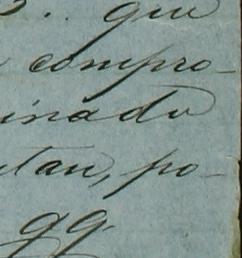 que
compro-
inado
tan, po-